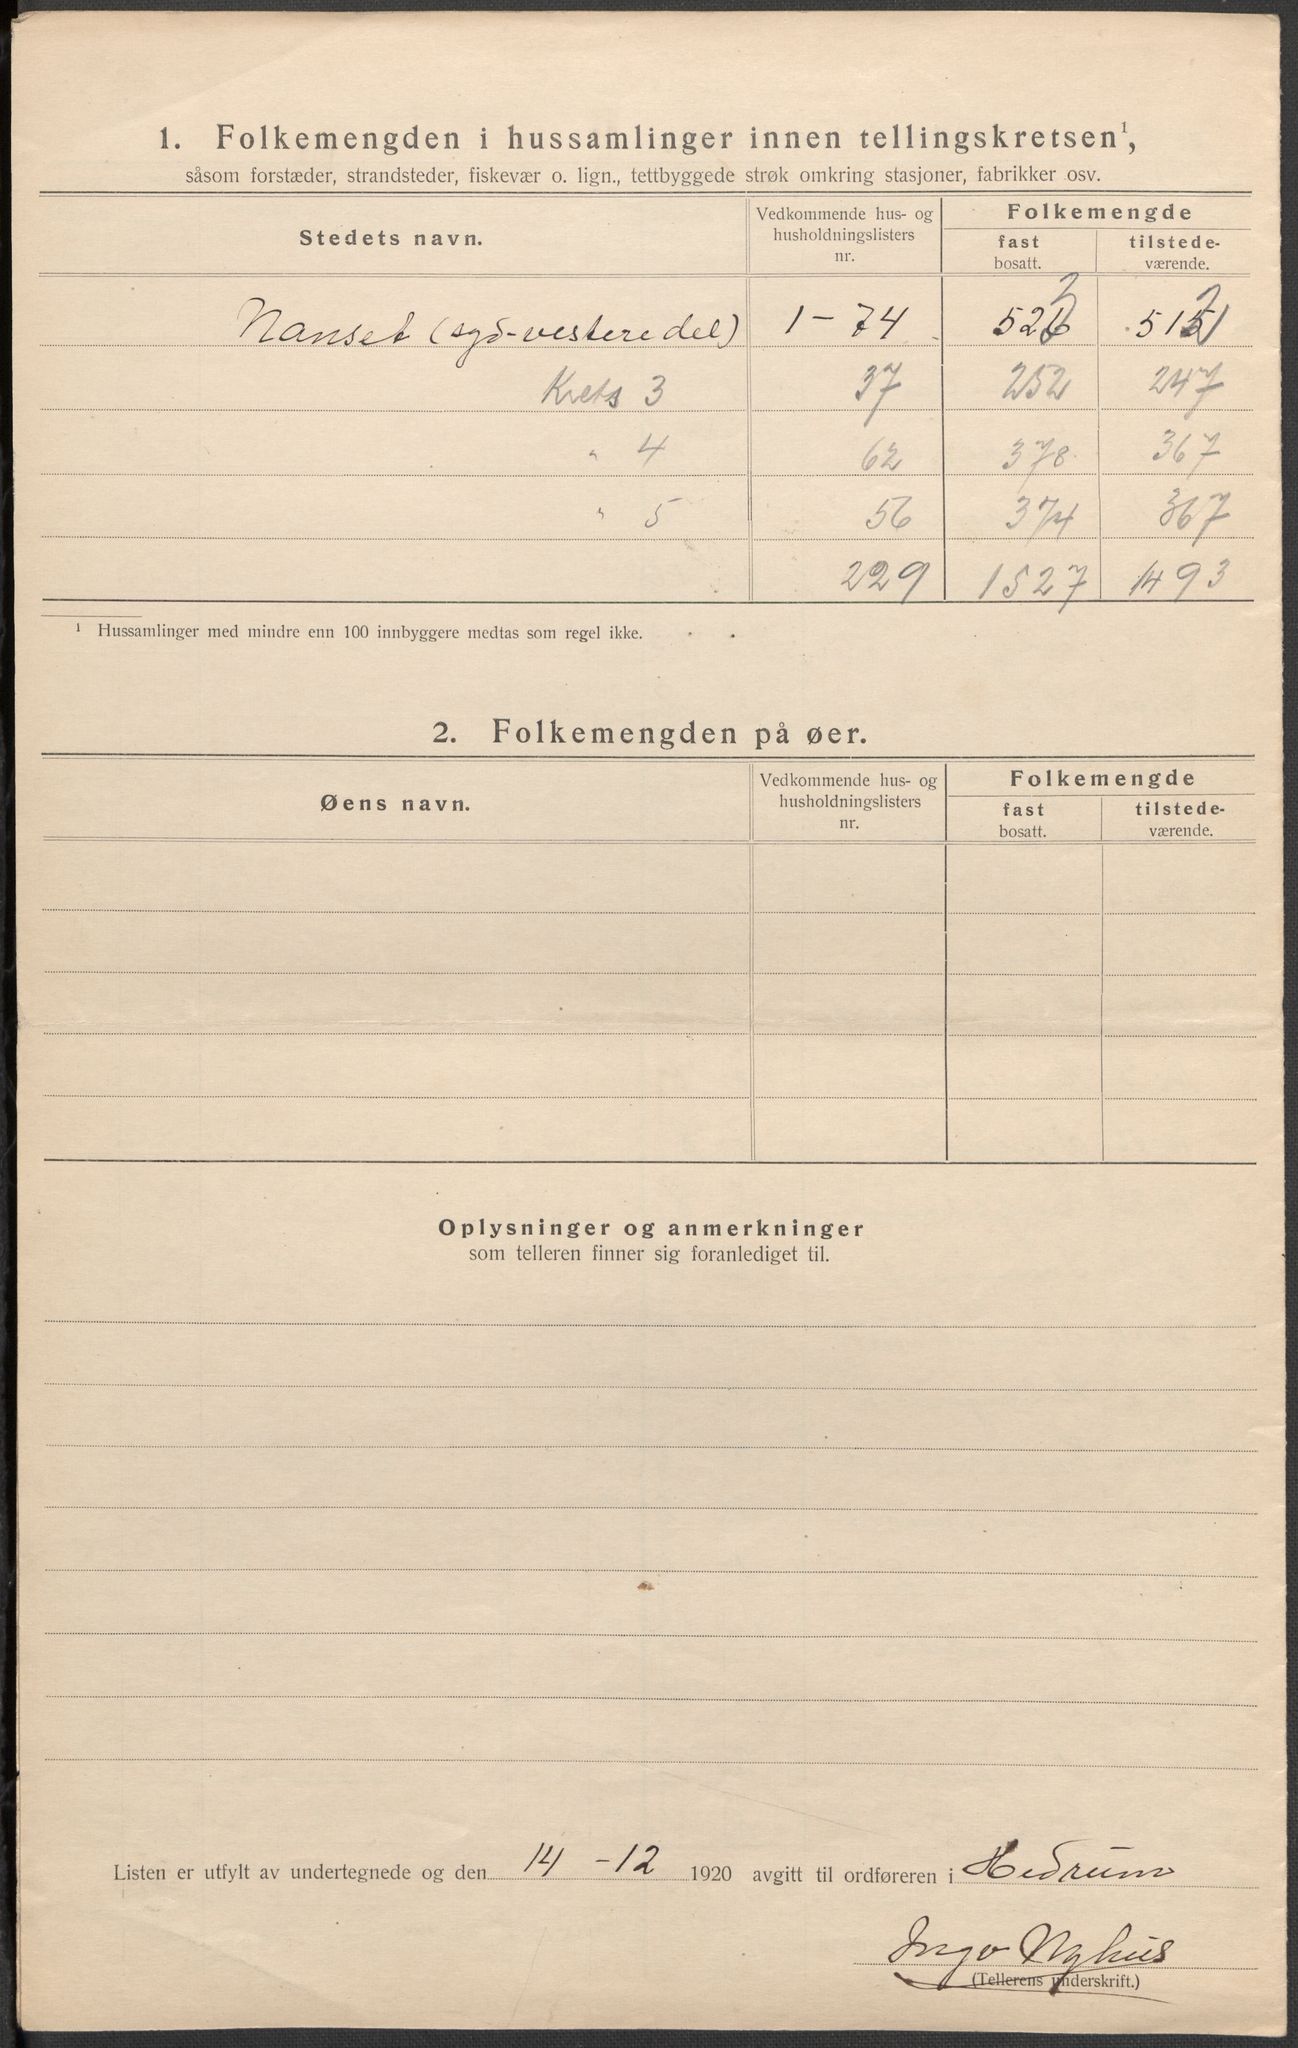 1. Folkemengden i hussamlinger innen tellingskretsen¹,
såsom forstæder, strandsteder, fiskevær o. lign., tettbyggede strøk omkring stasjoner, fabrikker osv.
Stedets navn. Vedkommende hus- og husholdningslisters nr. Folkemengde
fast bosatt. tilstede-værende.
Nanset (syd-vestere del) 1 - 74 523 512
Krets 3 37 252 247
" 4 62 378 367
" 5 56 374 367
229 1527 1493
¹ Hussamlinger med mindre enn 100 innbyggere medtas som regel ikke.
2. Folkemengden på øer.
Øens navn. Vedkommende hus- og husholdningslisters nr. Folkemengde
fast bosatt. tilstede-værende.
Oplysninger og anmerkninger
som telleren finner sig foranlediget til.
Listen er utfylt av undertegnede og den 14 - 12 1920 avgitt til ordføreren i Hedrum
Ingv Nyhus
(Tellerens underskrift.)